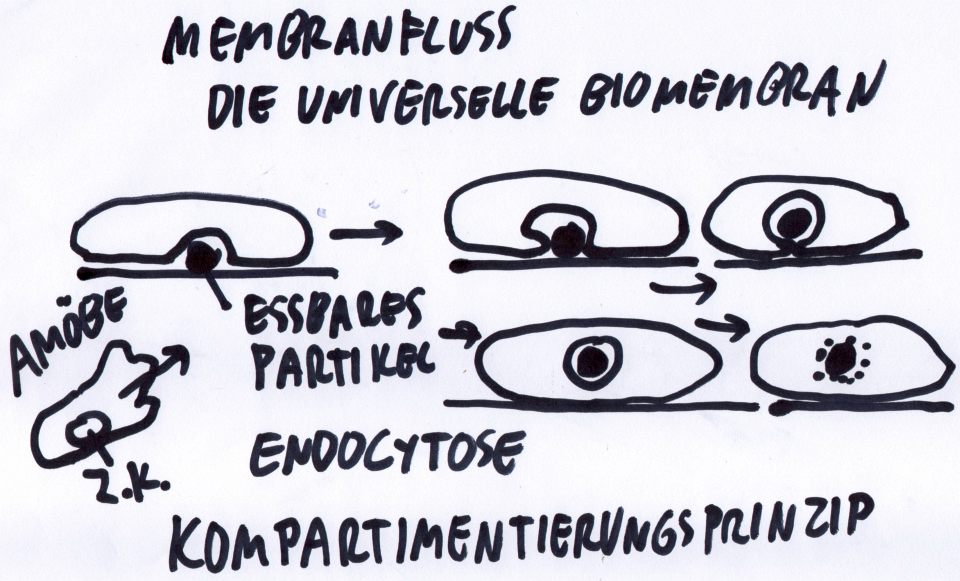 MEMBRANFLUSS
DIE UNIVERSELLE BIOMEMBRAN
AMÖBE
ESSBARES
PARTIKEL
Z.K.
ENDOCYTOSE
KOMPARTIMENTIERUNGSPRINZIP